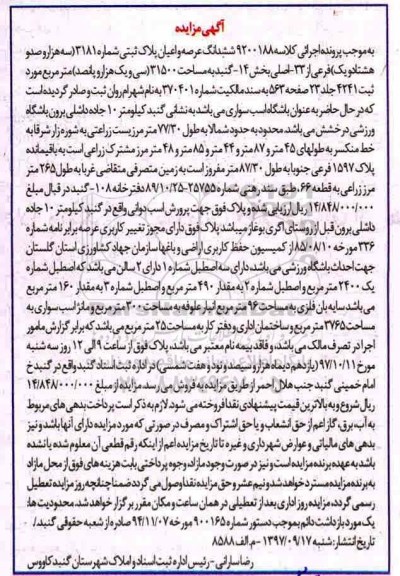 آگهی مزایده
به موجب پرونده اجرائی کلاسه ۹۲۰۰۱۸۸ ششدانگ عرصه و اعیان پلاک ثبتی شماره ۳۱۸۱ (سه هزار و صد و
هشتاد و یک) فرعی از ۳۳-اصلی بخش ۱۴- گنبد به مساحت ۳۱۵۰۰ (سی و یک هزار و پانصد) متر مربع مورد
ثبت ۴۲۴۱ جلد ۲۳ صفحه ۵۶۳ به سند مالکیت شماره ۳۷۰۴۰۱ به نام شهرام روان ثبت و صادر گردیده است
که در حال حاضر به عنوان باشگاه اسب سواری می باشد به نشانی گنبد کیلومتر ۱۰ جاده داشلی برون باشگاه
ورزشی در خشتی می باشد. محدود به حدود شمالا به طول ۷۷/۳۰ متر مرز بست زراعتی به شوره زار شرقا به
خط منکسر به طولهای ۴۵ متر و ۸۷ متر و ۴۴ متر و ۸۵ متر و ۴۸ متر مرز مشترک زراعی است به باقیمانده
پلاک ۱۵۹۷ فرعی جنوبا به طول ۸۷/۳۰ متر مفروز است به زمین متصرفی متقاضی غربا به طول ۲۶۵ متر
مرز زراعی به قطعه ۶۶. طبق سند رهنی شماره ۲۵۷۵۵-۸۹/۱۰/۲۵ دفترخانه ۱۰۸- گنبد در قبال مبلغ
۱۴/۸۴۸/۰۰۰/۰۰۰ ریال ارزیابی شده و پلاک فوق جهت پرورش اسب دوانی واقع در گنبد کیلومتر ۱۰ جاده
داشلی برون قبل از روستای اگری بوغاز میباشد پلاک فوق دارای مجوز تغییر کاربری عرصه برابر نامه شماره
۳۳۶ مورخه ۸۵/۰۸/۱۰ از کمیسیون حفظ کاربری اراضی و باغها سازمان جهاد کشاورزی استان گلستان
جهت احداث باشگاه ورزشی می باشد. دارای سه اصطبل شماره ۱ دارای ۲ سالن می باشد که اصطبل شماره
یک ۲۴۰۰ متر مربع و اصطبل شماره ۲ به مقدار ۴۹۰ متر مربع و اصطبل شماره ۳ به مقدار ۱۶۰ متر مربع
می باشد سایه بان فلزی به مساحت ۹۶ متر مربع انبار علوفه به مساحت ۳۰۰ متر مربع و مانژ اسب سواری به
مساحت ۳۷۶۵ متر مربع و ساختمان اداری و دفتر کار به مساحت ۲۵ متر مربع می باشد که برابر گزارش مامور
اجرا در تصرف مالک می باشد. و فاقد بیمه نامه معتبر می باشد. پلاک فوق از ساعت ۹ الی ۱۲ روز سه شنبه
مورخ ۹۷/۱۰/۱۱ (یازدهم دیماه هزار و سیصد و نود و هفت شمسی) در اداره ثبت اسناد گنبد واقع در گنبد خ
امام خمینی گنبد جنب هلال احمر از طریق مزایده به فروش می رسد. مزایده از مبلغ ۱۴/۸۴۸/۰۰۰/۰۰۰
ریال شروع و به بالاترین قیمت پیشنهادی نقدا فروخته می شود. لازم به ذکر است پرداخت بدهی های مربوط
به آب، برق، گاز اعم از حق انشعاب و یا حق اشتراک و مصرف در صورتی که مورد مزایده دارای آنها باشد و نیز
بدهی های مالیاتی و عوارض شهرداری و غیره تا تاریخ مزایده اعم از اینکه رقم قطعی آن معلوم شده یا نشده
باشد به عهده برنده مزایده است و نیز در صورت وجود مازاد، وجوه پرداختی بابت هزینه های فوق از محل مازاد
به برنده مزایده مسترد خواهد شد و نیم عشر و حق مزایده نقدا وصول می گردد ضمنا چنانچه روز مزایده تعطیل
رسمی گردد، مزایده روز اداری بعد از تعطیلی در همان ساعت و مکان مقرر برگزار خواهد شد. محدودیت ها:
یک مورد بازداشت دائم بموجب دستور شماره ۹۰۰۱۶۵ مورخه ۹۴/۱۱/۰۷ صادره از شعبه حقوقی گنبد./
تاریخ انتشار: شنبه ۱۳۹۷/۰۹/۱۷ -م. الف ۸۵۸۸
رضا سارانی - رئیس اداره ثبت اسناد و املاک شهرستان گنبد کاووس